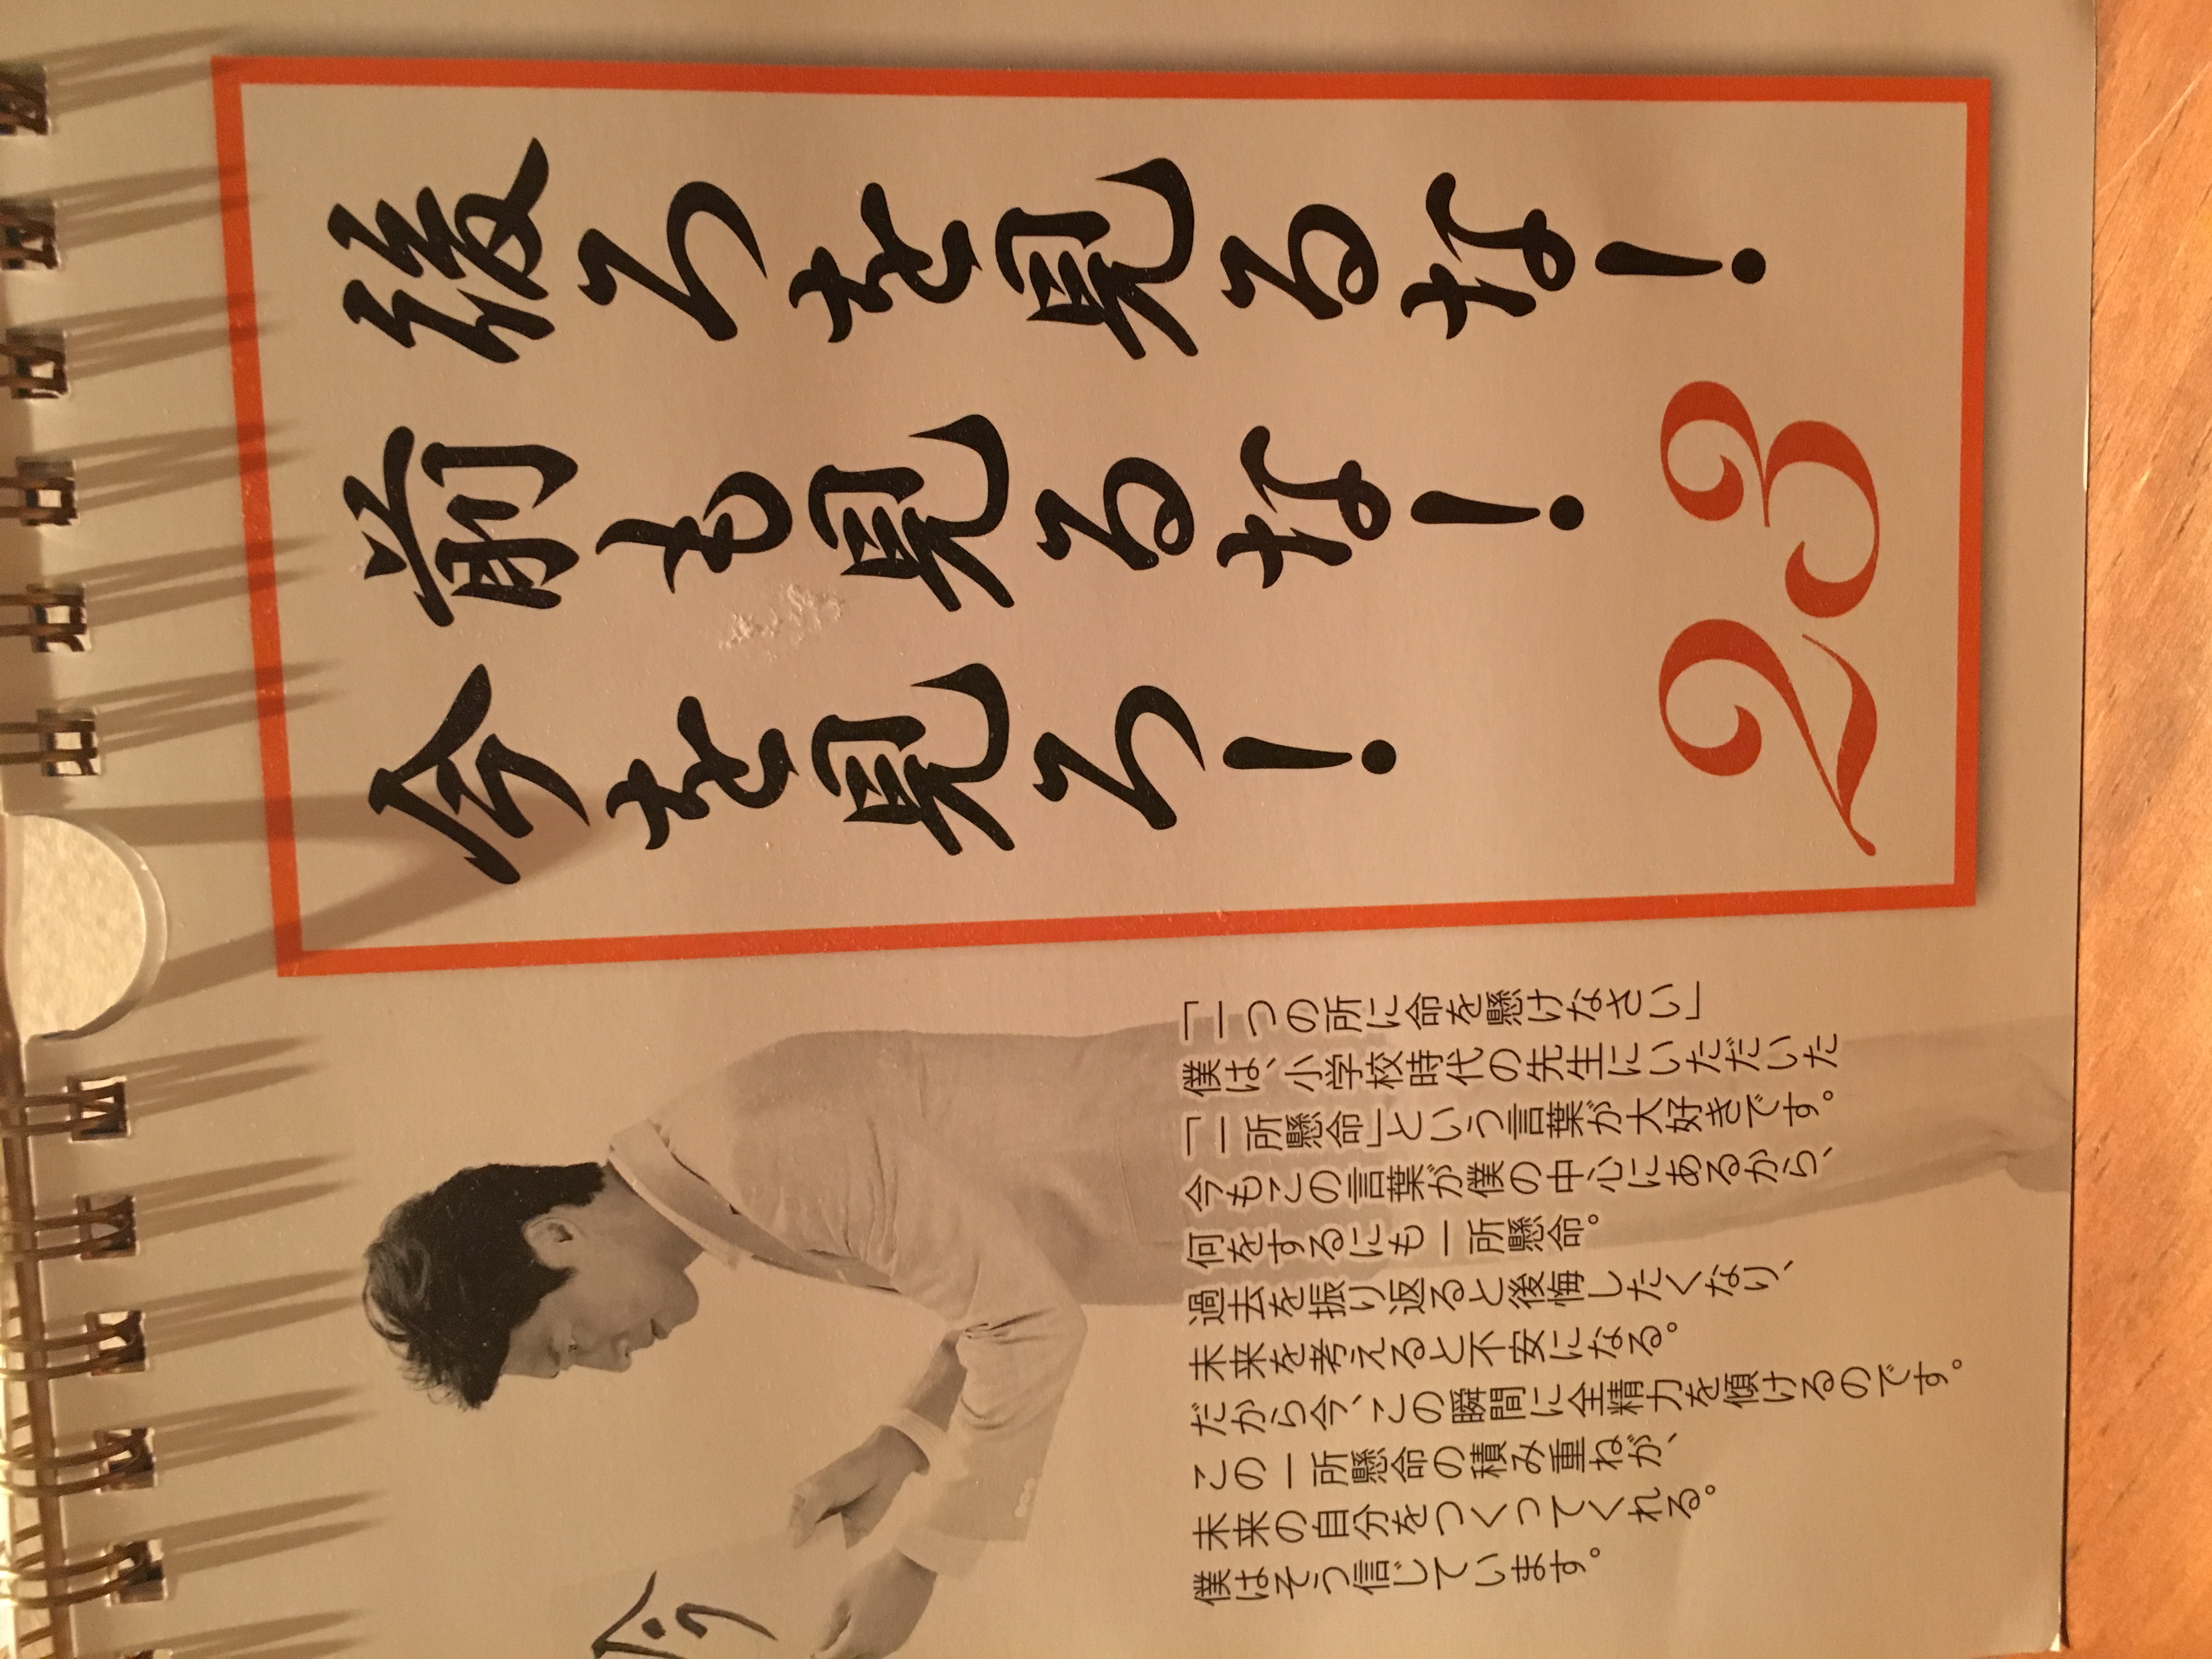 後ろを見るな!
前も見るな!
今を見ろ!
23
「一つの所に命を懸けなさい」
僕は、小学校時代の先生にいただいた
「一所懸命」という言葉が大好きです。
今もこの言葉が僕の中心にあるから、
何をするにも一所懸命。
過去を振り返ると後悔したくなり、
未来を考えると不安になる。
だから今、この瞬間に全精力を傾けるのです。
この一所懸命の積み重ねが、
未来の自分をつくってくれる。
僕はそう信じています。
今